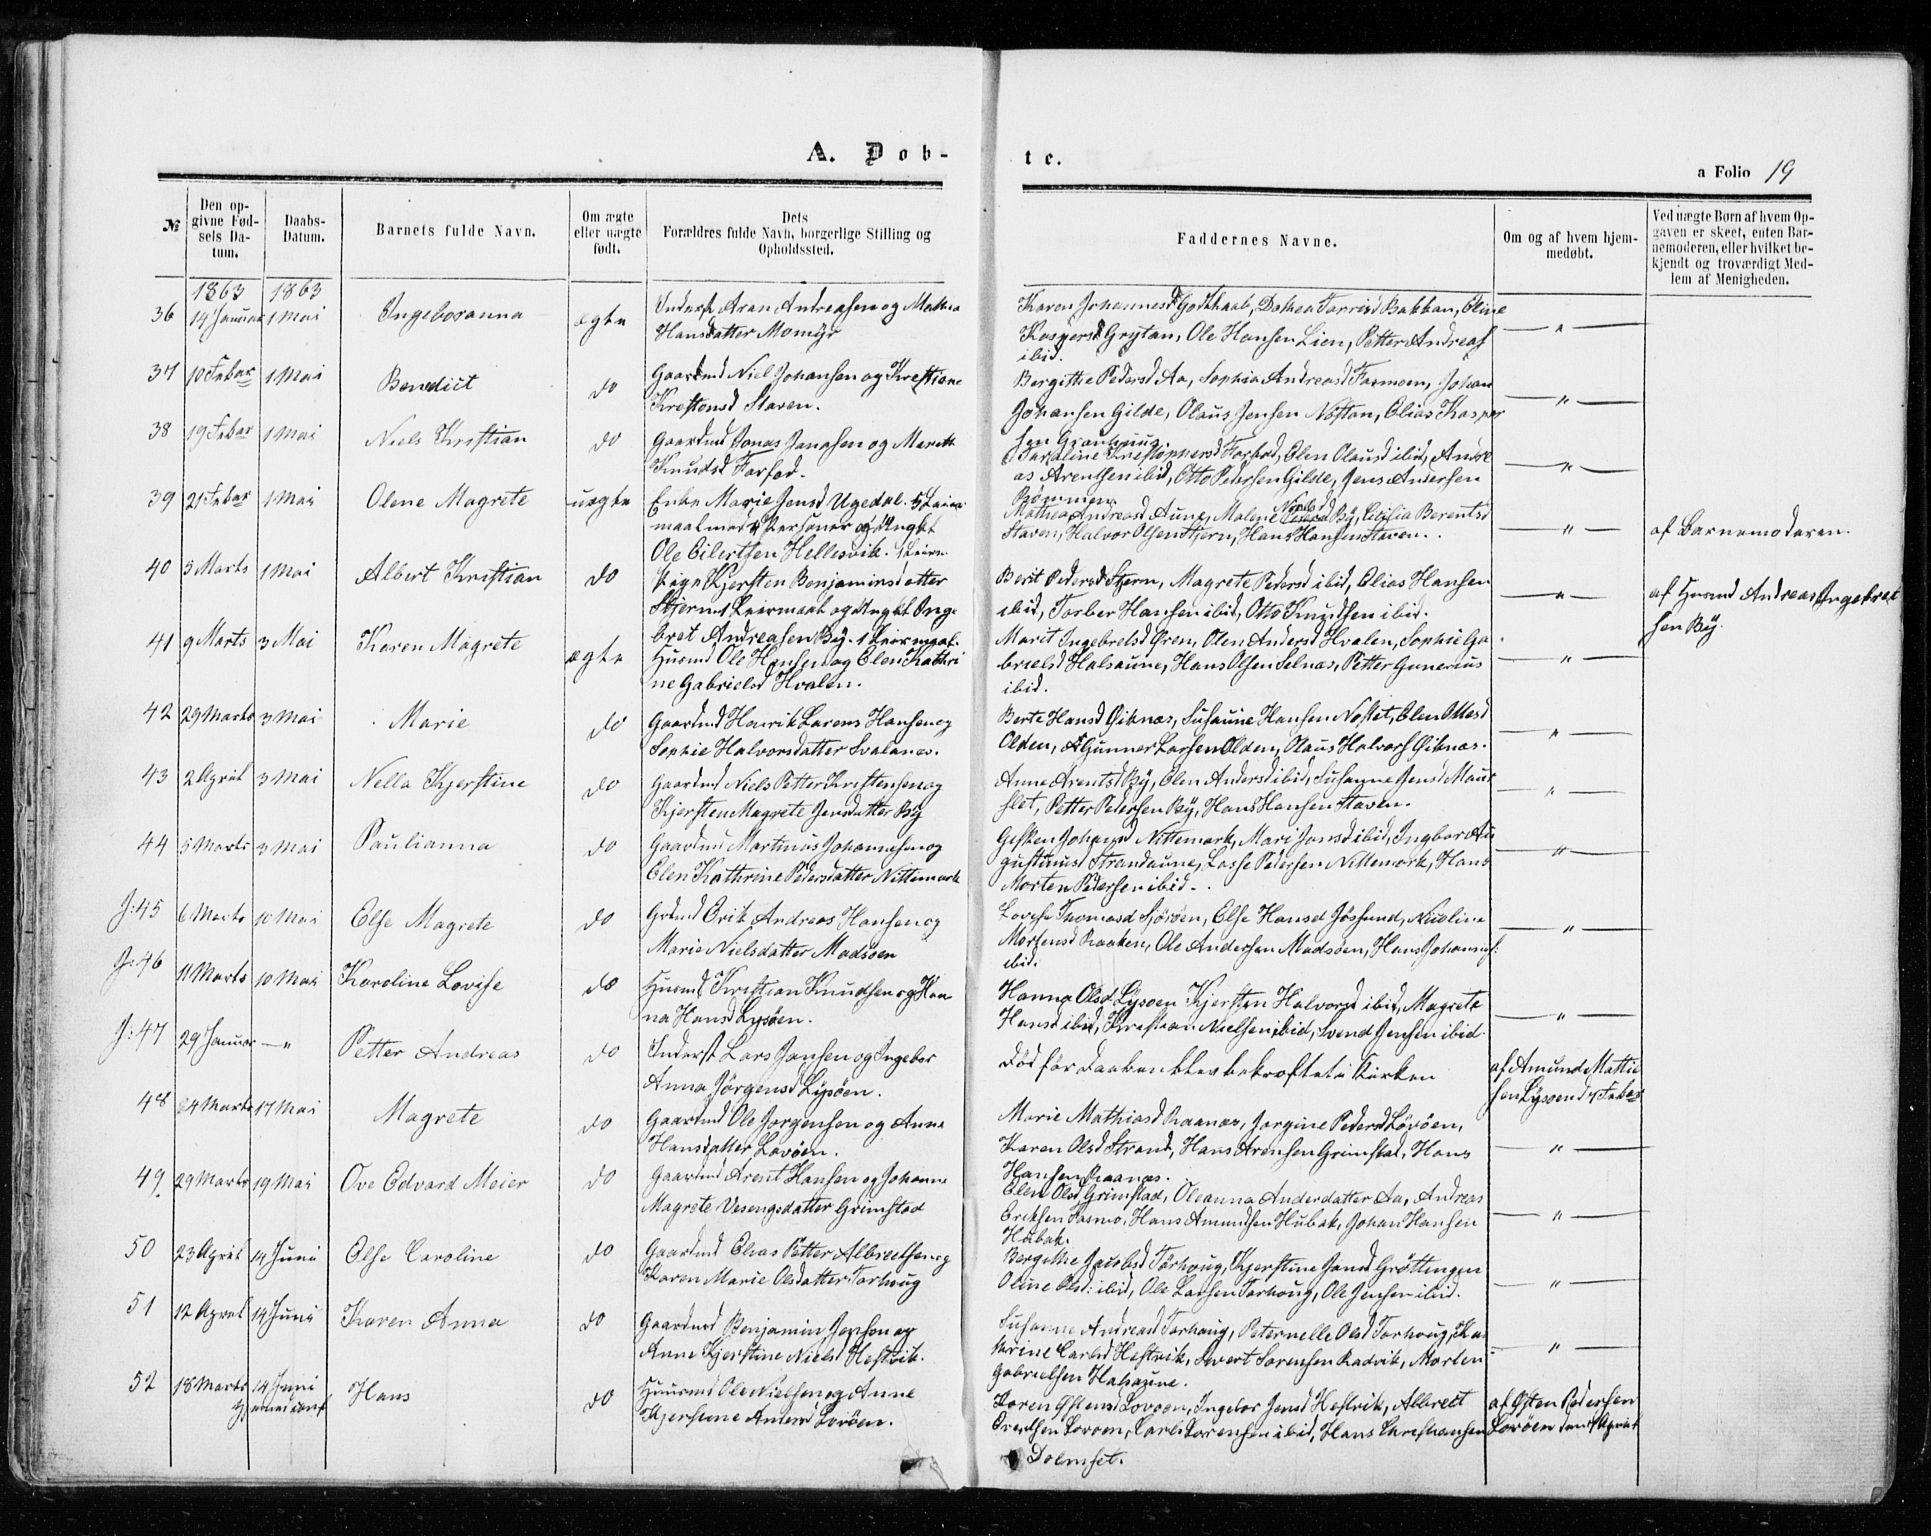 A. Døb-
te.
a Folio 19
№
Den opgivne Fødsels Datum.
Daabs-Datum.
Barnets fulde Navn.
Om ægte eller uægte født.
Dets Forældres fulde Navn, borgerlige Stilling og Opholdssted.
Faddernes Navne.
Om og af hvem hjemmedøbt.
Ved uægte Børn af hvem Opgaven er skeet, enten Barnemoderen, eller hvilket bekjendt og troværdigt Medlem af Menigheden.
1863 1863
36 14 Januar 1 Mai Ingeboranna ægte Inderst Aran Andreasen og Mathea
Hansdatter Momyr
Karen Johannesd Godthaab, Dothea Bakkan, Oline
Kaspersd Grytan, Ole Hansen Lien, Petter Andreas
ibid. — " —
37 10 Febar 1 Mai Benedict do Gaardmd Niel Johansen og Krestiane
Krestensd Staven.
Bergitte Pedersd Aa, Sophia Andreasd Farmoen, Johan
Johansen Gilde, Olaus Jensen Nostan, Elias Kasper
sen Granhuus. — " —
38 19 Febar 1 Mai Niels Kristian do Gaardmd Jonas Jonasen og Marett
Knudsd Farfod.
Karoline Kristophersd Farfod, Elen Olausd ibid, Andre
as Arentsen ibid, Otto Pedersen Gilde, Jens Andersen
Rømmen. — " —
39 21 Febar 1 Mai Olene Magrete uægte Enke Marie Jensd Ugedal. 5 Leier
maal med 4 Personer og Ungkl
Ole Eilertsen Hellesvik. 1 Leierm.
Mathea Andreasd Aune, Malene Nielsd By, Cicilia Berentsd
Staven, Halvor Olsen Stjern, Hans Hansen Staven. — " — af Barnemoderen.
40 3 Marts 1 Mai Albert Kristian do Pige Kjersten Benjaminsdatter
Stjern 1 Leiermaal og Ungkl Inge
bret Andreasen By. 1 Leiermaal.
Berit Pedersd Stjern, Magrete Pedersd ibid, Elias Hansen
ibid, Torber Hansen ibid, Otto Knudsen ibid. — " — af Husmd Andreas Ingebret
sen By.
41 9 Marts 3 Mai Karen Magrete ægte Husmd Ole Hansen og Elen Kathri
ne Gabrielsd Hvalen.
Marit Ingebretsd Øren, Elen Andersd Hvalen, Sophie Ga
brielsd Halsaune, Hans Olsen Selnæs, Petter Gunerius
ibid. — " —
42 29 Marts 3 Mai Marie do Gaardmd Henrik Larens Hansen og
Sophie Halvorsdatter Svalanes.
Berte Hansd Øiknæs, Susanne Hansen Nostet, Elen
Olden, Gunner Larsen Olden, Olaus Halvors Øiknæs. — " —
43 2 April 3 Mai Nella Kjerstine do Gaardmd Niels Petter Kristensen og
Kjersten Magrete Jensdatter By
Anne Arentsd By, Elen Andersd ibid, Susanne Jensd Maur
slet, Petter Pedersen By, Hans Hansen Staven. — " —
44 5 Marts 3 Mai Paulianna do Gaardmd Martinus Johannesen og
Elen Kathrine Pedersdatter Nittemark
Gisken Johansd Nittemark, Mari Jonsd ibid, Ingbor Au
gustinusd Strandaune, Lasse Pedersen Nittemark, Hans
Morten Pedersen ibid. — " —
J: 45 6 Marts 10 Mai Else Magrete do Grdmd Erik Andreas Hansen og
Marie Nielsdatter Madsøen
Lovise Thomasd Sjøsøen, Else Hansd Jøssund, Nicoline
Mortensd Raaken, Ole Andersen Madsøen, Hans Johannes:
ibid. — " —
J: 46 11 Marts 10 Mai Karoline Lovise do Husmd Kristian Knudsen og Han
na Hansd Lysøen.
Hanna Olsd Lysøen Kjersten Halvorsd ibid, Magrete
Hansd ibid, Kristian Nielsen ibid, Svend Jensen ibid — " —
J: 47 29 Januar — " Petter Andreas do Inderst Lars Jansen og Ingebor
Anna Jørgensd Lysøen.
Död før Daaben blev bekræftet i Kirken
af Amund Mathi
sen Lysøen d 4 Febar
48 24 Marts 17 Mai Magrete do Gaardmd Ole Jørgensen og Anne
Hansdatter Lovøen.
Marie Mathiasd Raanes, Jørgine Pedersd Lovøen,
Karen Olsd Strand, Hans Arensen Grimstad, Hans
Hansen Raanæs. — " —
49 29 Marts 19 Mai Ove Edvard Meier do Gaardmd Arent Hansen og Johanne
Magrete Vesengsdatter Grimstad
Elen Olsd Grimstad, Oleanna Andersdatter Aa, Andreas
Eriksen Farmo, Hans Amundsen Hubak, Johan Hansen
Hubak. — " —
50 23 April 14 Juni Olse Caroline do Gaardmd Elias Petter Albrectsen og
Karen Marie Olsdatter Tarhoug
Bergitthe Jacobsd Tarhoug, Kjerstine Jansd Grøttingen
Oline Olsd: ibid, Ole Larsen Tarhoug, Ole Jensen ibid. — " —
51 12 April 14 Juni Karen Anna do Gaardmd Benjamin Jensen og
Anne Kjerstine Nielsd Hestvik.
Susanne Andreasd Tarhoug, Peternelle Olsd Tarhoug, Ka
thrine Carlsd Hestvik, Sivert Sørensen Radvik, Morten
Gabrielsen Halsaune. — " —
52 18 Marts 14 Juni Hans do Huusmd Ole Nielsen og Anne
Kjerstine Andersd Lovøen.
Karen Østensd Lovøen, Ingebor Jensd Hestvik, Albrect
Lovøen, Carl Larensen ibid, Hans Christiansen
Dolmset.
af Østen Pedersen
Lovøen den 1 April